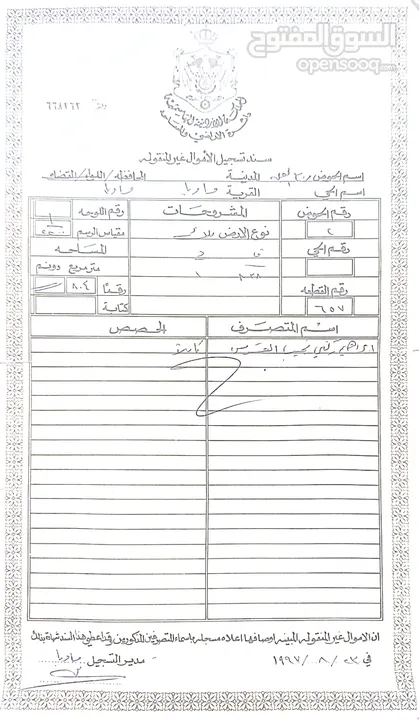 السوق المفتوح
opensooq.com
رقم ٦٦٨١٦٢
المملكة الأردنية الهاشمية
دائرة الاراضي والمساحة
سند تسجيل الأموال غير المنقوله
اسم الحوض المدينة المحافظه/اللواء/القضاء
اسم الحي القرية مادبا مادبا
رقم الحوض المشروحات رقم اللوحه
٢ نوع الارض ملك مقياس الرسم
رقم الحي المساحه
متر مربع دونم
رقم القطعه رقمًا ٨٠٤
٦٥٧ كتابة
اسم المتصرف الحصص
كاملة
ان الاموال غير المنقوله المبينه اوصافها اعلاه مسجله باسماء المتصرفين المذكورين وقد اعطي هذا السند شهادة بذلك
في ٢٣ / ٨ / ١٩٩٧ مدير التسجيل مادبا